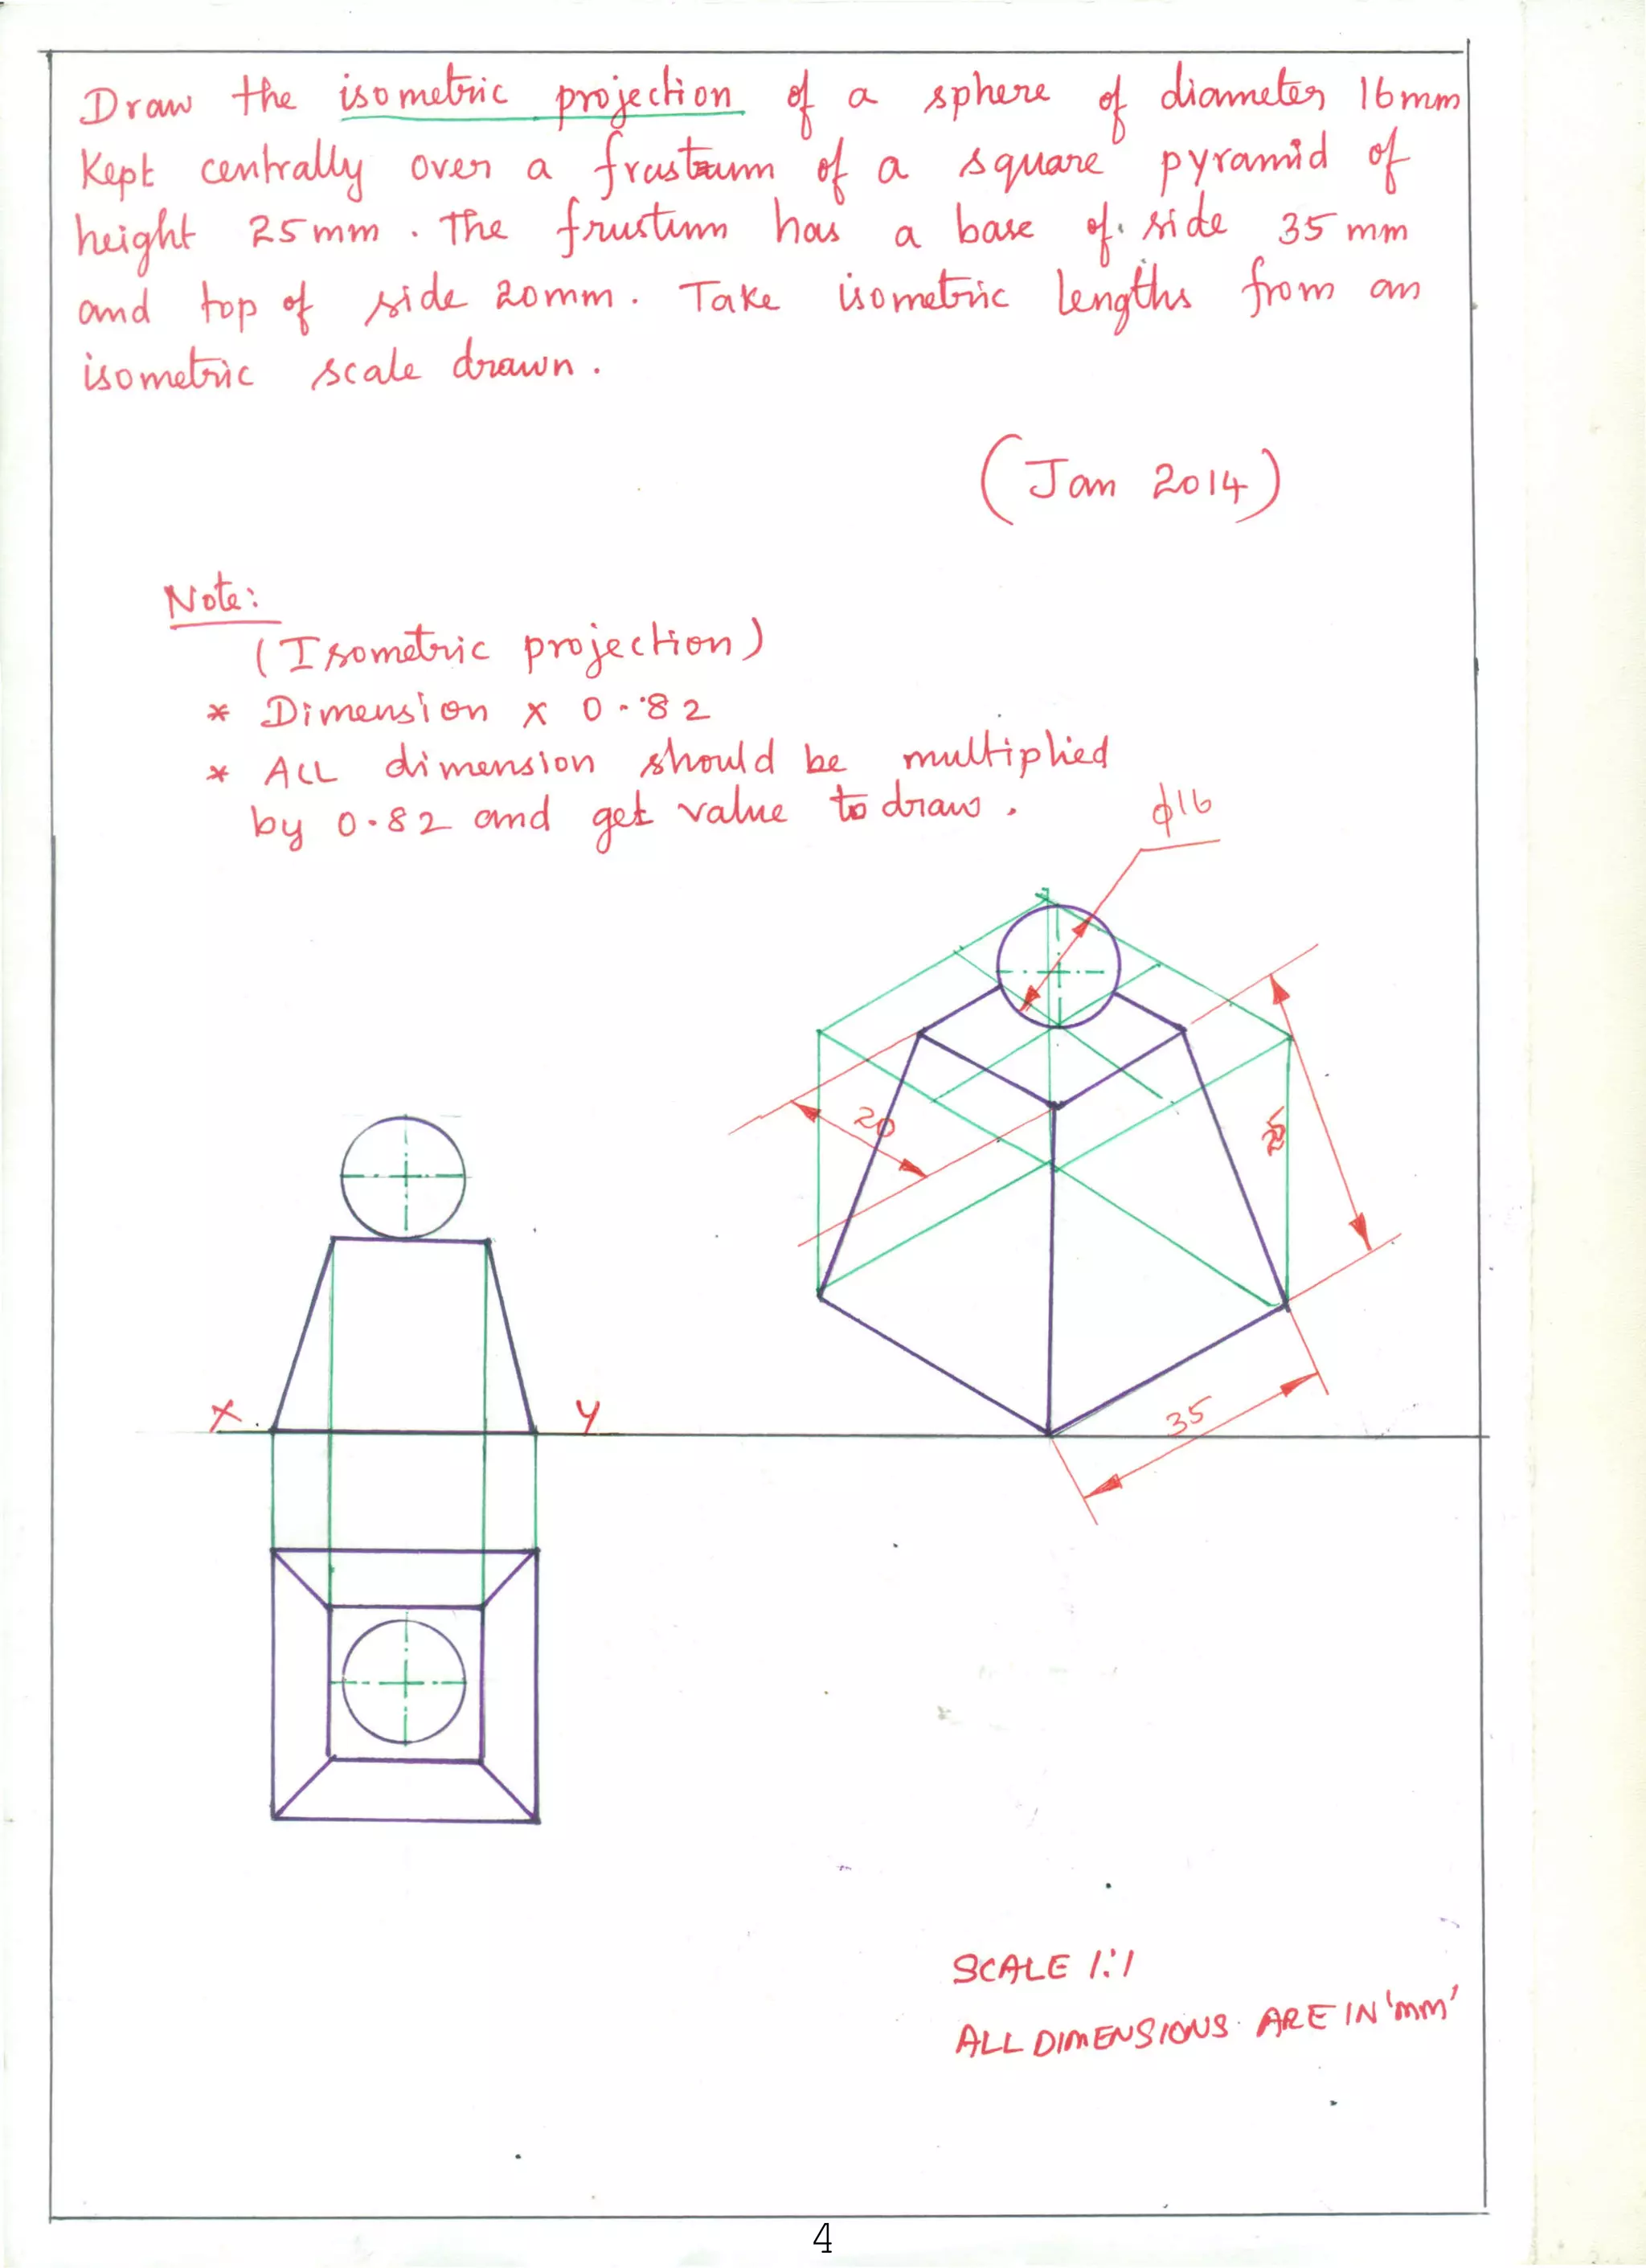 Draw the isometric projection of a sphere of diameter 16mm
Kept centrally over a frustum of a square pyramid of
height 25mm. The frustum has a base of side 35 mm
and top of side 20mm. Take isometric lengths from an
isometric scale drawn.
(Jan 2014)
Note:
(Isometric projection)
* Dimension x 0.82
* ALL dimension should be multiplied
by 0.82 and get value to draw.
ϕ16
20
25
X
Y
35
SCALE 1:1
ALL DIMENSIONS ARE IN 'mm'
4